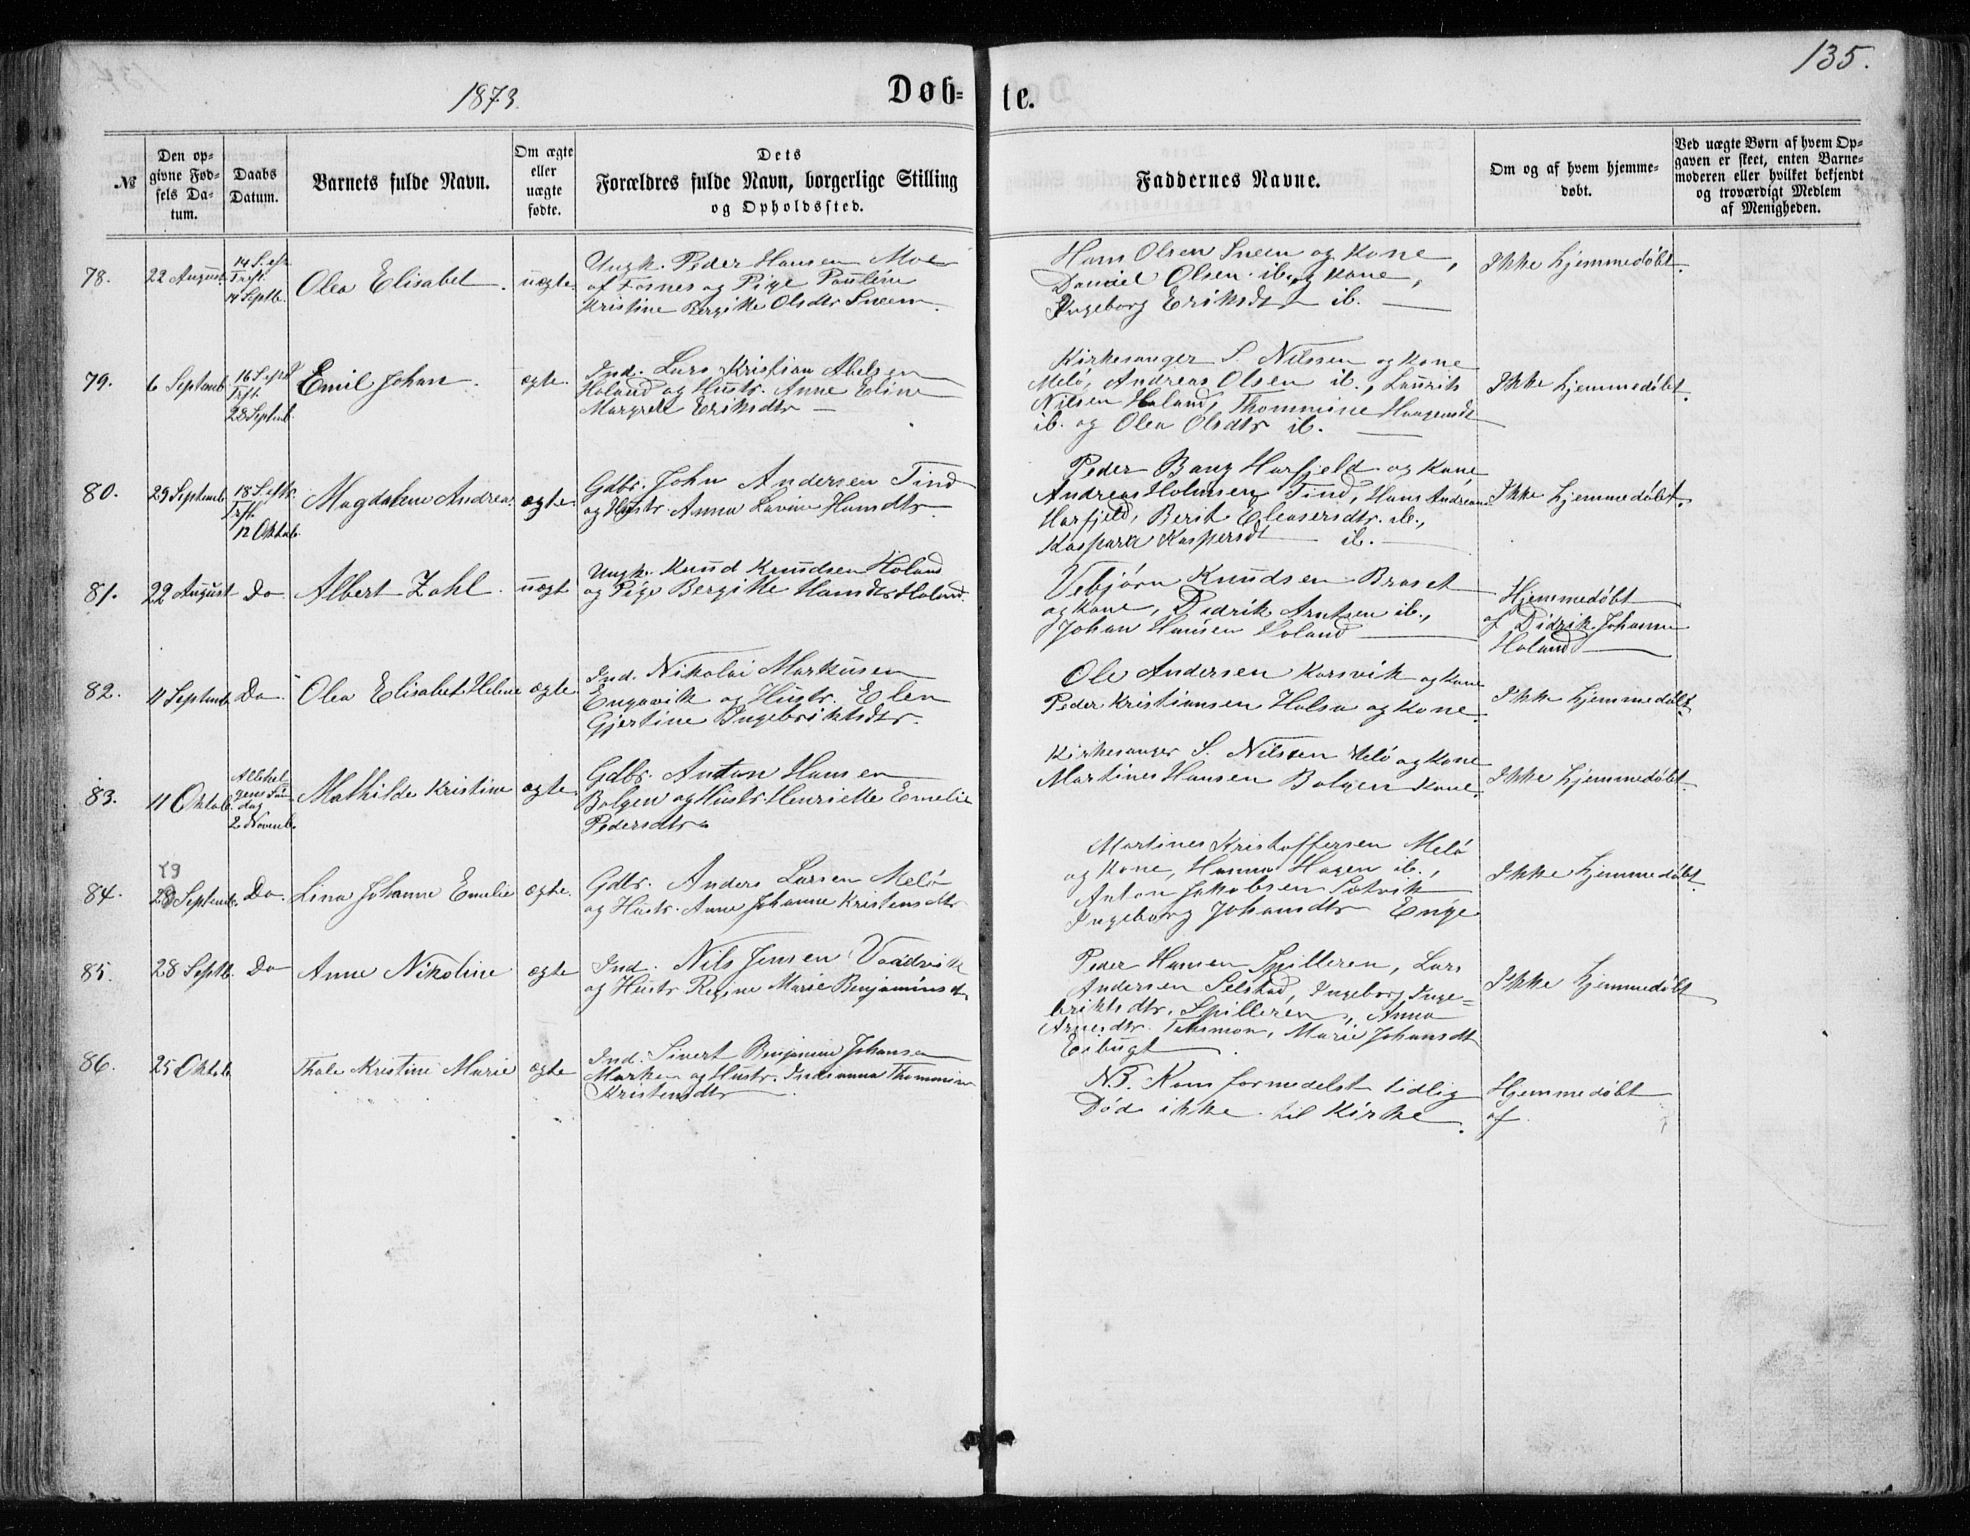 135.
1873.
Døb-
te.
№
Den op-
givne Fød-
sels Da-
tum.
Daabs
Datum.
Barnets fulde Navn.
Om ægte
eller
uægte
fødte.
Dets
Forældres fulde Navn, borgerlige Stilling
og Opholdssted.
Faddernes Navne.
Om og af hvem hjemme-
døbt.
Ved uægte Børn af hvem Op-
gaven er skeet, enten Barne-
moderen eller hvilket bekjendt
og troværdigt Medlem
af Menigheden.
78.
22 August.
14 S. eft
Trft.
14 Septb.
Olea Elisabet.
uægte.
Ungk. Peder Hansen Moe
af Fosnes og Pige Pauline
Kristine Bergitte Olsdtr Sneen.
Hans Olsen Sneen og Kone,
Daniel Olsen ib. og Kone,
Ingeborg Eriksdt ib.
Ikke hjemmedøbt.
79.
6 Septemb.
16 S. eft
Trft.
28 Septemb.
Emil Johan.
ægte.
Ind. Lars Kristian Abelsen
Holand og Hustr. Anne Eline
Margrete Eriksdtr
Kirkesanger S. Nilssen og Kone
Melö, Andreas Olsen ib., Laurits
Nilsen Holand, Thommine Haagensdt
ib. og Olea Olsdtr ib.
Ikke hjemmedøbt.
80.
29 Septemb.
18 S. eftr.
Trft.
12 Oktob.
Magdalene Andrea.
ægte.
Gdbr. John Andersen Tind
og Hustr. Anna Lavine Hansdtr.
Peder Bang Harfjeld og Kone,
Andreas Holmsen Tind, Hans Andreas
Harfjeld, Berit Eleasersdtr. ib.,
Kaspara Kaspersdt ib.
Ikke hjemmedøbt.
81.
22 August
Do
Albert Zahl.
uægt
Ungk. Knud Knudsen Holand
og Pige Bergitte Hansdtr Holand.
Vebjørn Knudsen Braset
og Kone, Didrik Arntsen ib.,
Johan Hansen Holand
Hjemmedøbt
af Didrik Johann
Holand
82.
11 Septemb.
Do.
Olea Elisabet Helene
ægte
Ind. Nikolai Markusen
Engavik og Hustr. Elen
Gjertine Ingebriktsdtr.
Ole Andersen Korsvik og Kone
Peder Kristiansen Halsa og Kone.
Ikke hjemmedøbt
83.
11 Oktob.
Allehel
gens Søn
dag
2 Novemb.
Mathilde Kristine
ægte.
Gdbr. Anton Hansen
Bolgen og Hustr. Henriette Emelie
Pedersdtr.
Kirkesanger S. Nilssen Melö og Kone
Martines Hansen Bolgen Kone.
Ikke hjemmedøbt.
84.
19
28 Septemb.
Do.
Lina Johanne Emelie
ægte.
Gdbr. Anders Larsen Melö
og Hustr. Anne Johanne Kristensdtr
Martines Kristoffersen Melö
og Kone, Hanna Hagen ib.,
Anton Jakobsen Sotvik
Ingeborg Johansdtr Enge
Ikke hjemmedøbt
85.
28 Septb.
Do
Anne Nikoline
ægte
Ind. Nils Jensen Vaadvik
og Hustr Regine Marie Benjaminsdt
Peder Hansen Spilderen, Lars
Andersen Selstad, Ingeborg Inge-
briktsdtr. Spilderen, Anna
Arnesdtr. Marie Johansdt
Eibugt
Ikke hjemmedøbt
86.
25 Oktob.
Thale Kristine Marie
ægte
Ind. Sivert Benjamin Johansen
Marken og Hustr. Indianna Thommine
Kristensdtr
NB. Kom formedelst tidlig
Død ikke til Kirke.
Hjemmedøbt
af